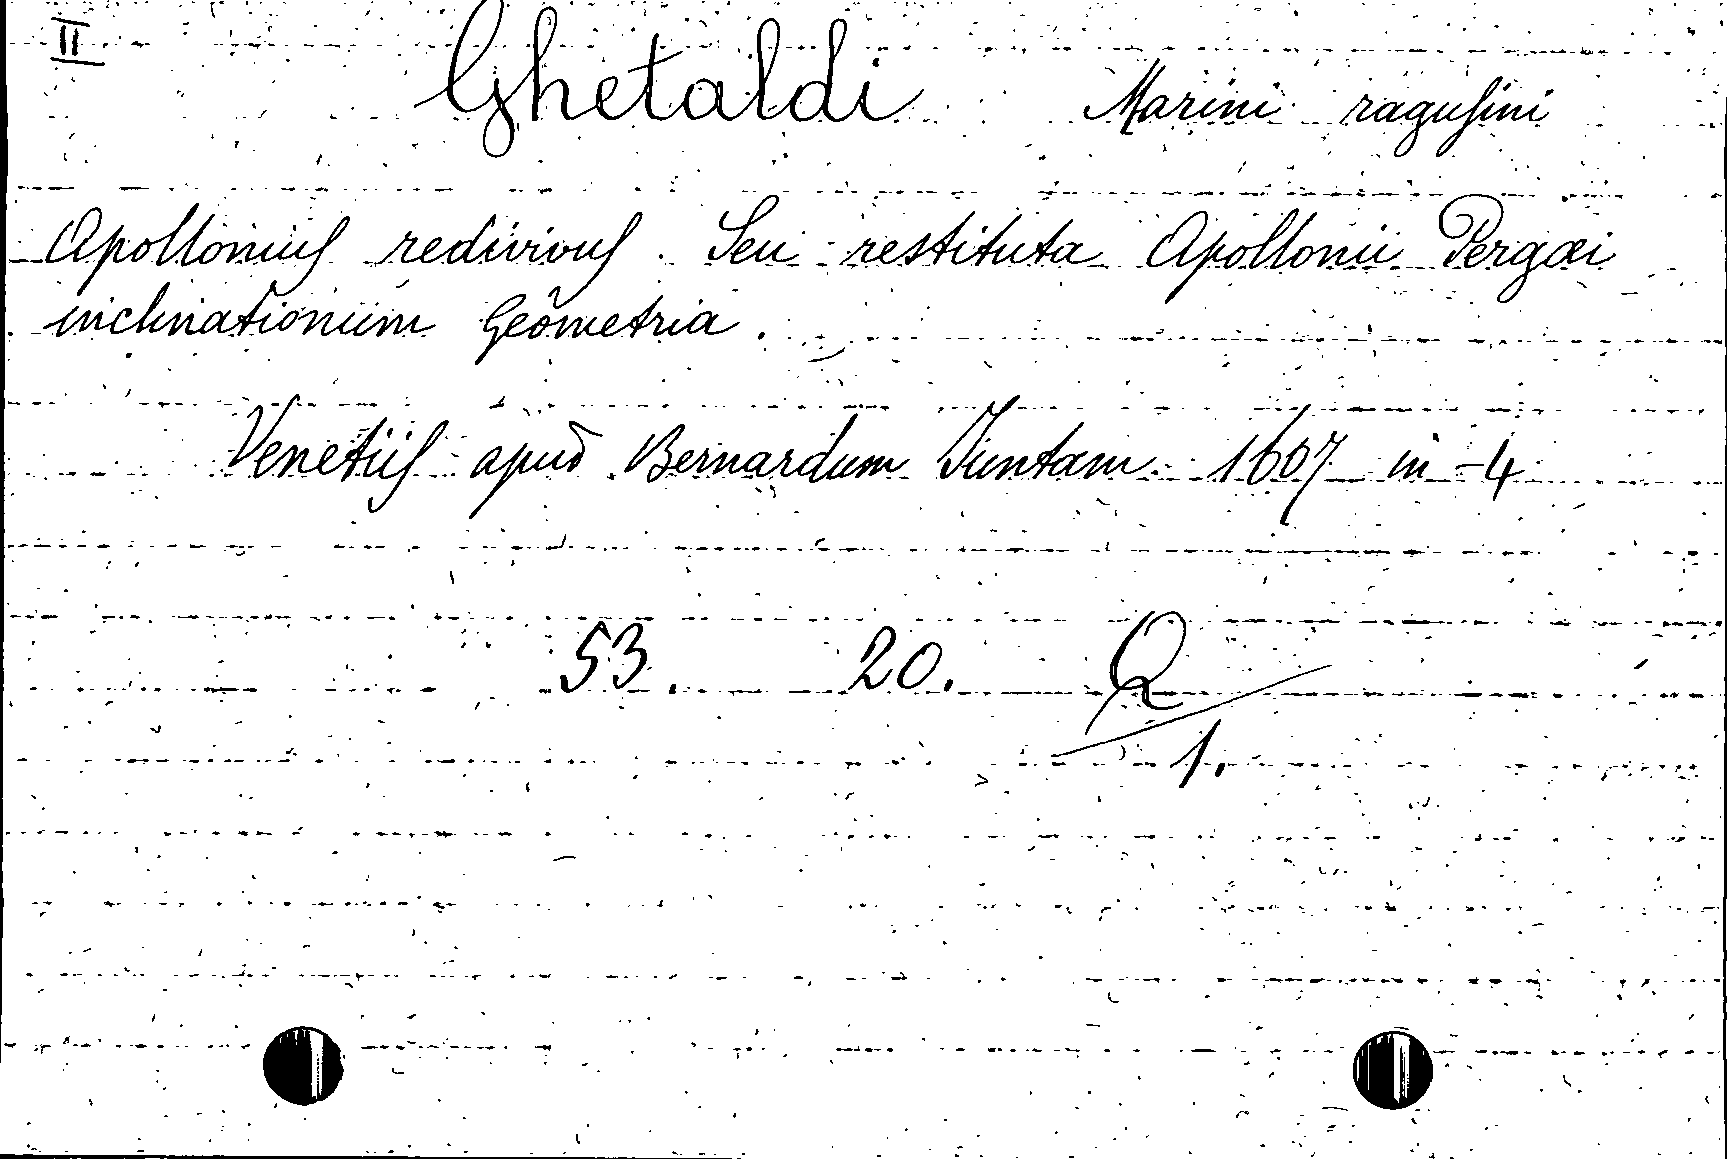 II
Ghetaldi Marini ragusini
Apollonius redivivus. Seu restituta Apollonii Pergæi
inclinationum Geometria.
Venetiis apud Bernardum Juntam 1607 in-4
53. 20. Q
1.